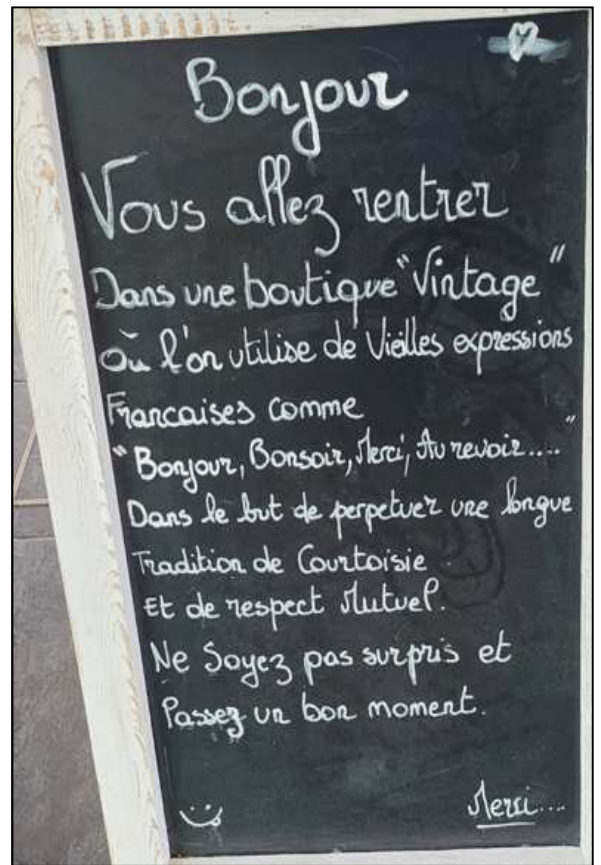 Bonjour
Vous allez rentrer
Dans une boutique "Vintage"
Où l'on utilise de Vieilles expressions
Francaises comme
"Bonjour, Bonsoir, Merci, Au revoir...."
Dans le but de perpetuer une longue
Tradition de Courtoisie
Et de respect Mutuel.
Ne Soyez pas surpris et
Passez un bon moment.
Merci....